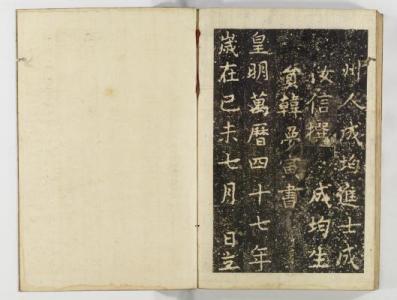 州人成均進士成
汝信撰 成均生
員韓夢寅書
皇明萬曆四十七年
歲在己未七月 日立